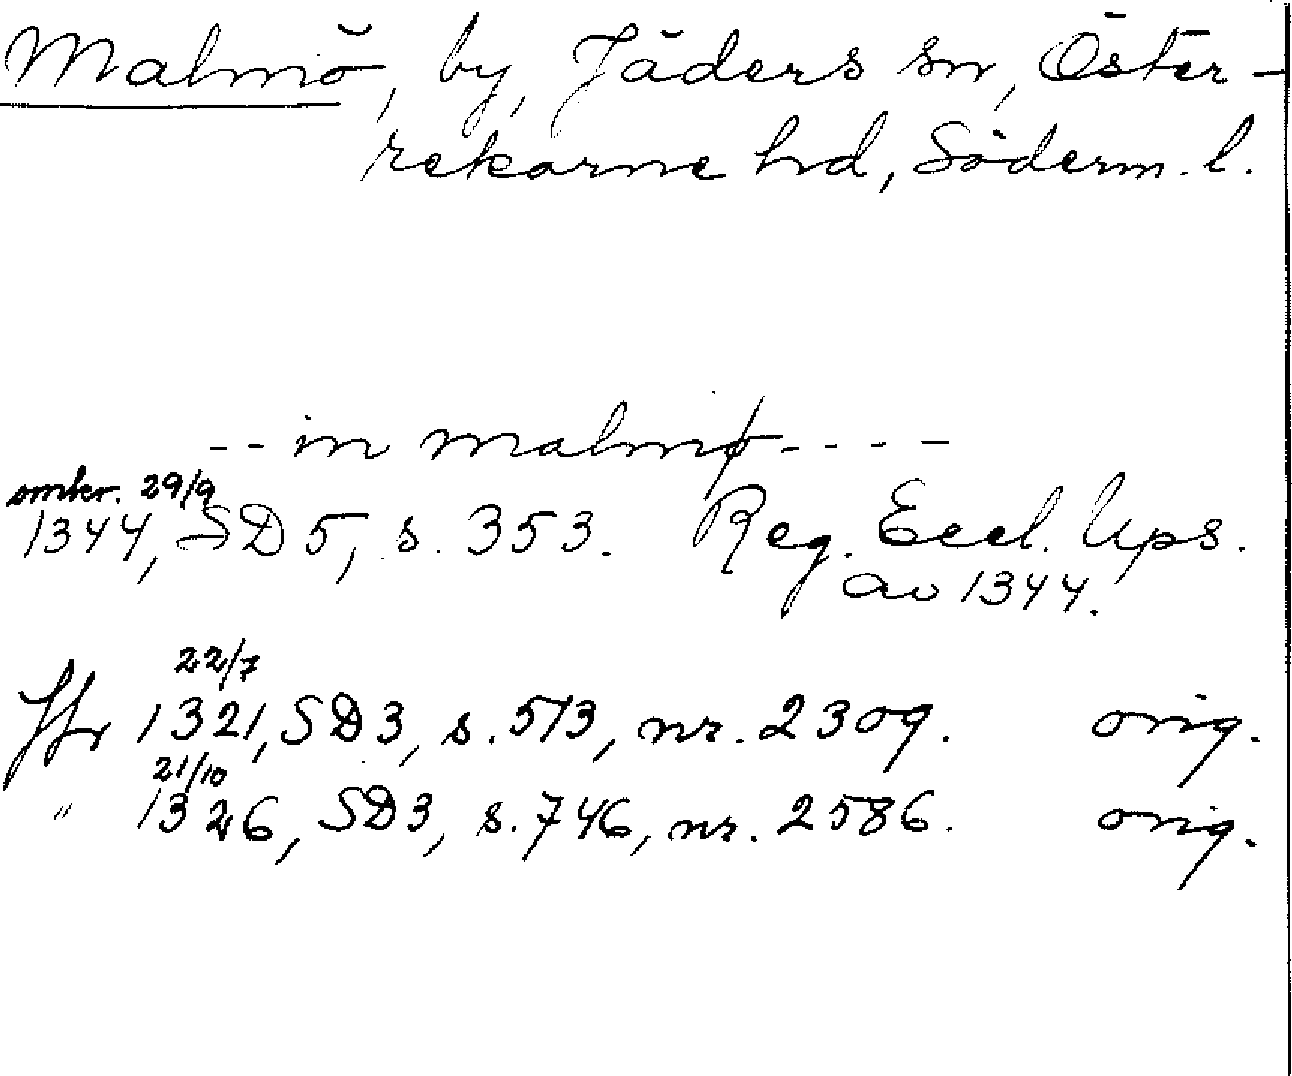 Malmö, by, Jäders sn, Öster-
rekarne hd, Söderm. l.
-- in malmø - - - -
omkr. 29/9
1344, SD 5, s. 353. Reg. Eccl. Ups.
av 1344.
22/7
Jfr 1321, SD 3, s. 513, nr. 2309. orig.
21/10
" 1326, SD 3, s. 746, nr. 2586. orig.